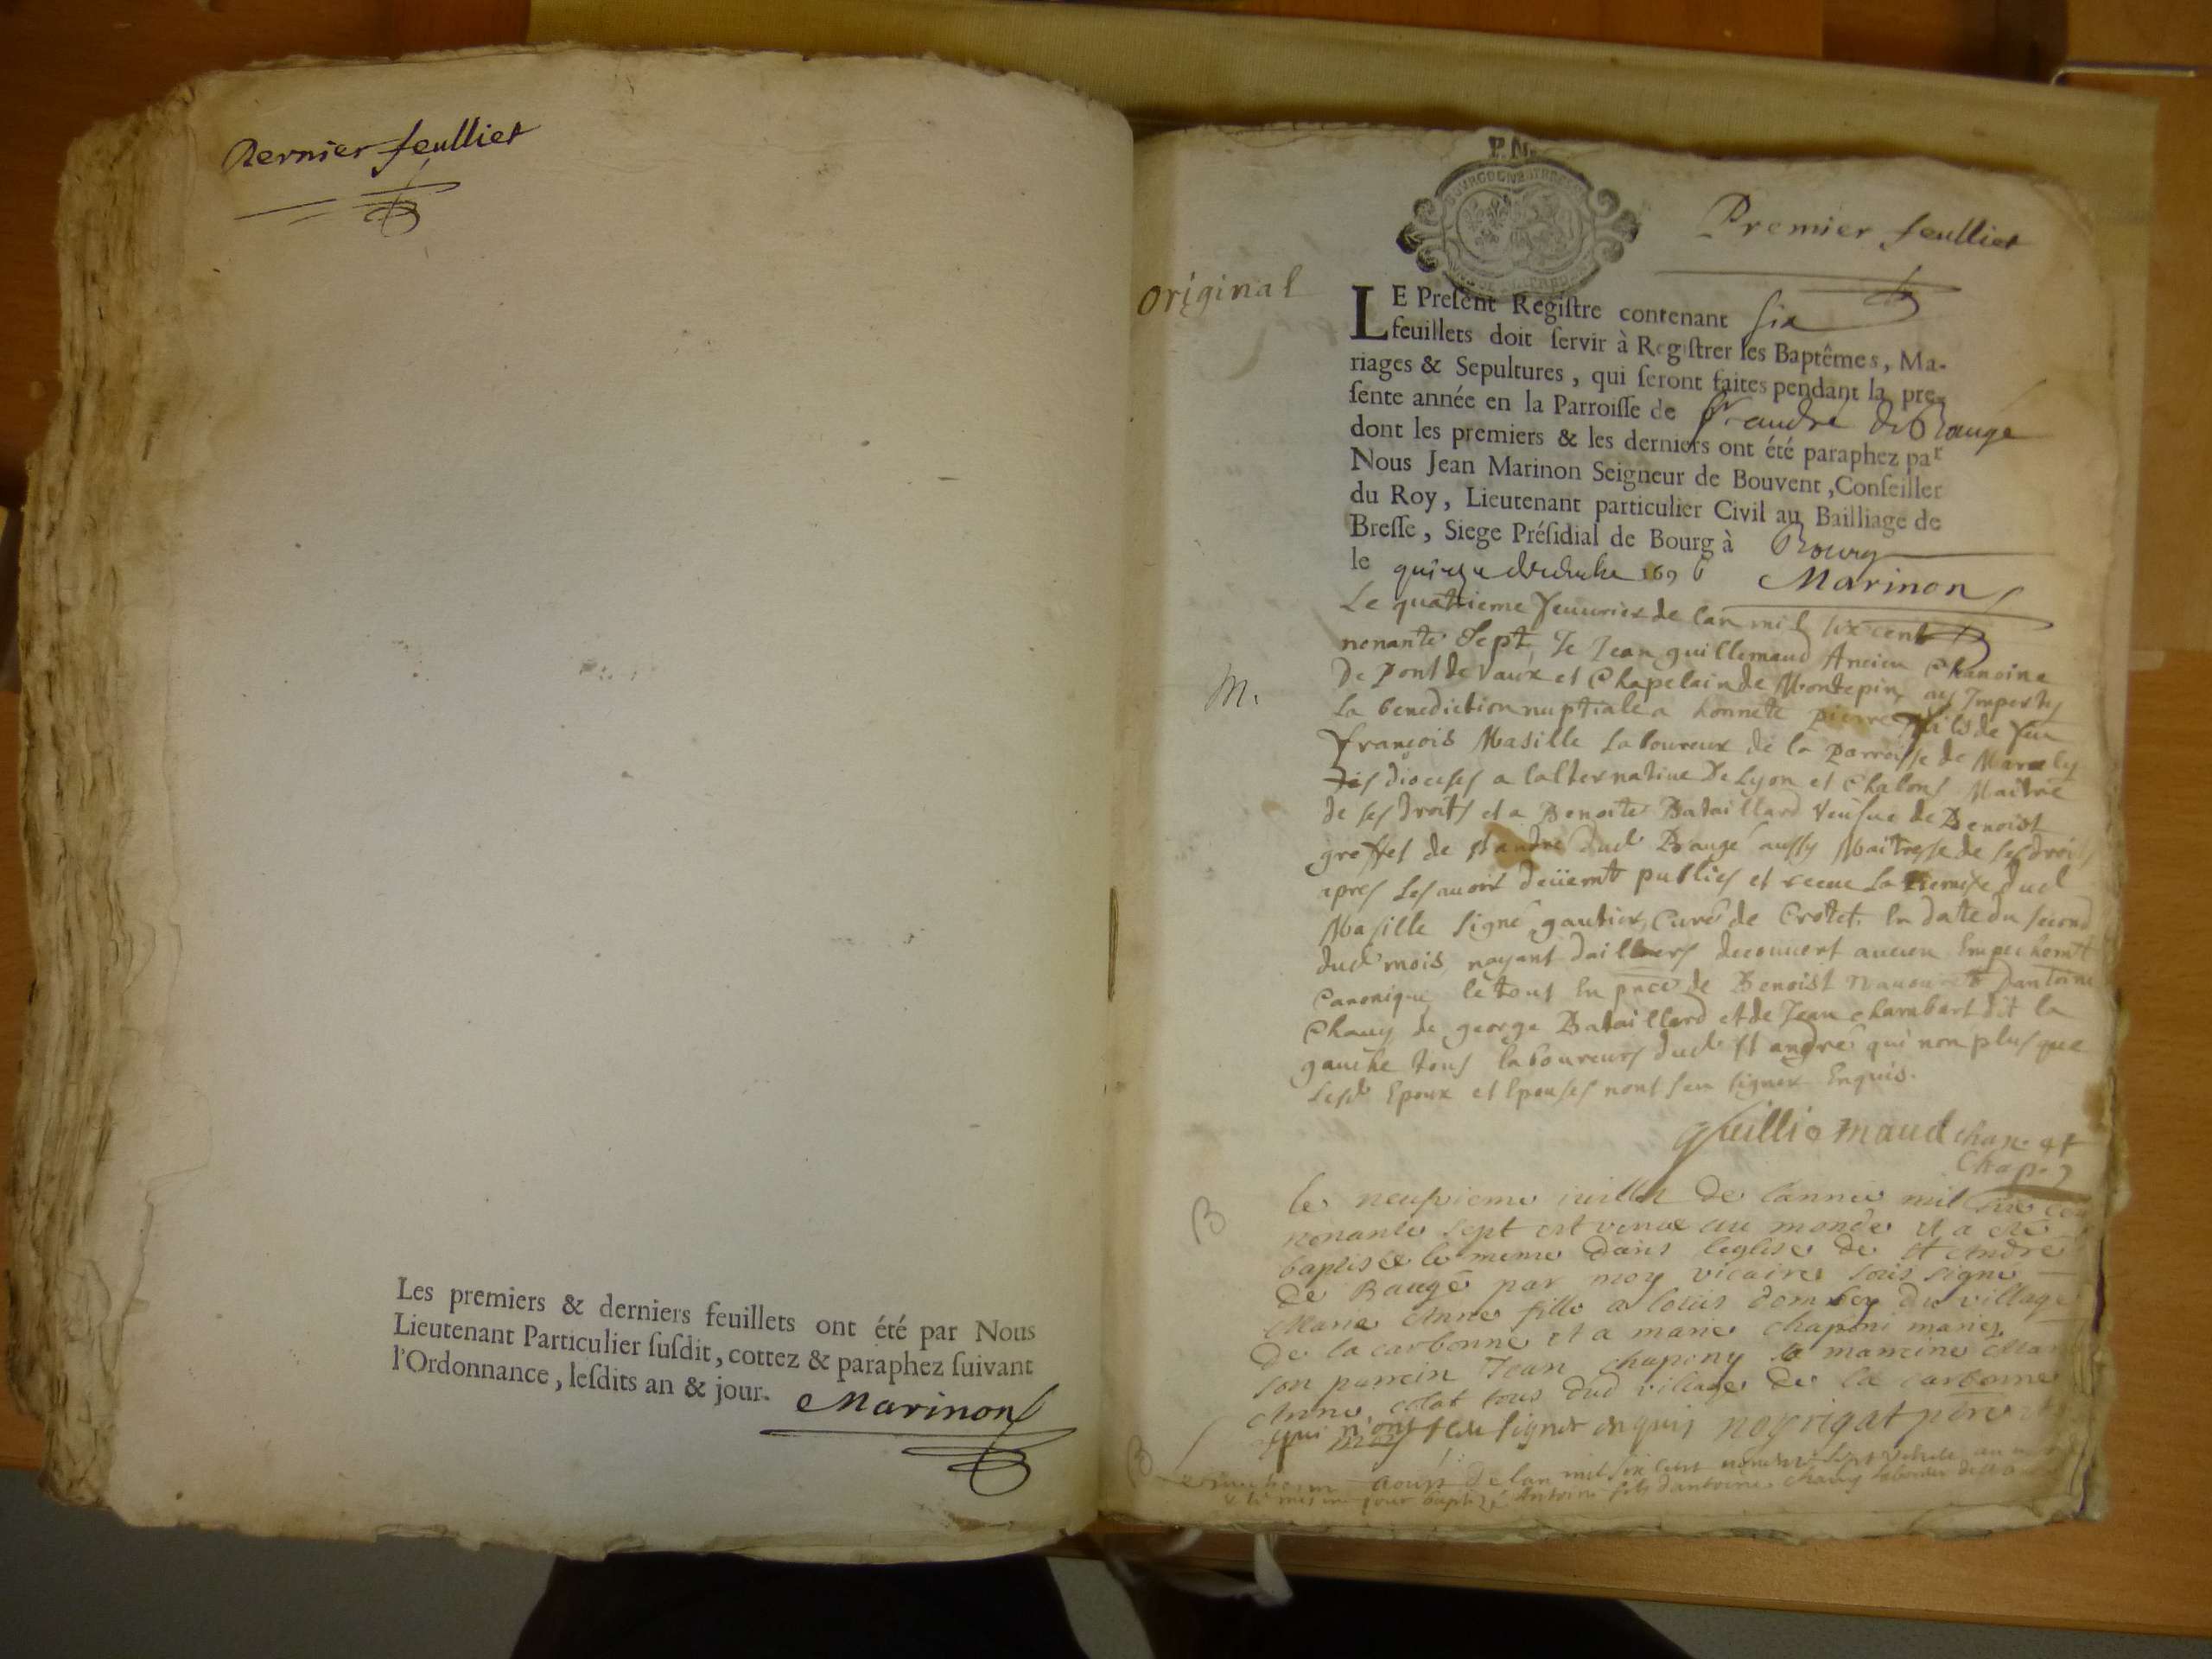 Dernier feulliet
Les premiers & derniers feuillets ont été par Nous
Lieutenant Particulier ſuſdit, cottez & paraphez ſuivant
l'Ordonnance, leſdits an & jour. Marinon
P.N.
Premier feulliet
original
LE Preſent Regiſtre contenant six
feuillets doit ſervir à Regiſtrer les Baptêmes, Ma-
riages & Sepultures, qui ſeront faites pendant la pre-
ſente année en la Parroiſſe de St andré de Baugé
dont les premiers & les derniers ont été paraphez par
Nous Jean Marinon Seigneur de Bouvent, Conſeiller
du Roy, Lieutenant particulier Civil au Bailliage de
Breſſe, Siege Préſidial de Bourg à Bourg
le quinze decembre 1696 Marinon
Le quatrieme feuurier de lan mil six cent
nonante Sept, Je Jean guillemaud Ancien Chanoine
M.
De Pont de Vaux et Chapelain de Montepin, ay Imparty
La benediction nuptiale a honnete pierre fils de feu
françois Masille laboureur de la parroisse de
des dioceses a lalternatiue De Lyon et Chalons Maitre
de ses droits et a Benoite Bataillard Veusue de Benoist
greffet de st andre dud Baugé aussy Maitresse de ses droits
apres les auoir deüemt publies et receu la remise dud
Masille signé gautier, Curé de Crotet. En date du second
dud mois, nayant dailleurs decouuert aucun Empechemt
Canonique, le tout En pnce de Benoist Dantoine
Chauy, de george Bataillard et de Jean charabart dit la
gauche tous laboureurs dud st andré qui non plus que
Lesd Epoux et Epouses nont sceu signer Enquis.
guilliomaud chan. et
Chap.
B
le neufvieme iuillet de lannee mil six cent
nonante sept est venue au monde et a eté
baptisée le meme dans leglise de st André
de Baugé par moy vicaire sous signé
Marie Anne fille a loüis dombey du village
de la carbonne et a marie chaponi mariez
son parrein Jean chapony la marreine Marie
Anne tous dud village de la carbonne
qui n'ont sceu signer enquis
B
aoust de lan mil six cent nonante sept
le mesme jour baptizé Antoine fils dantoine chauy